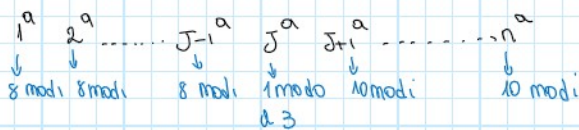 1ª 2ª ........ J-1ª Jª J+1ª ........ nª
↓ ↓ ↓ ↓ ↓ ↓
8 modi 8 modi 8 modi 1 modo 10 modi 10 modi
a 3